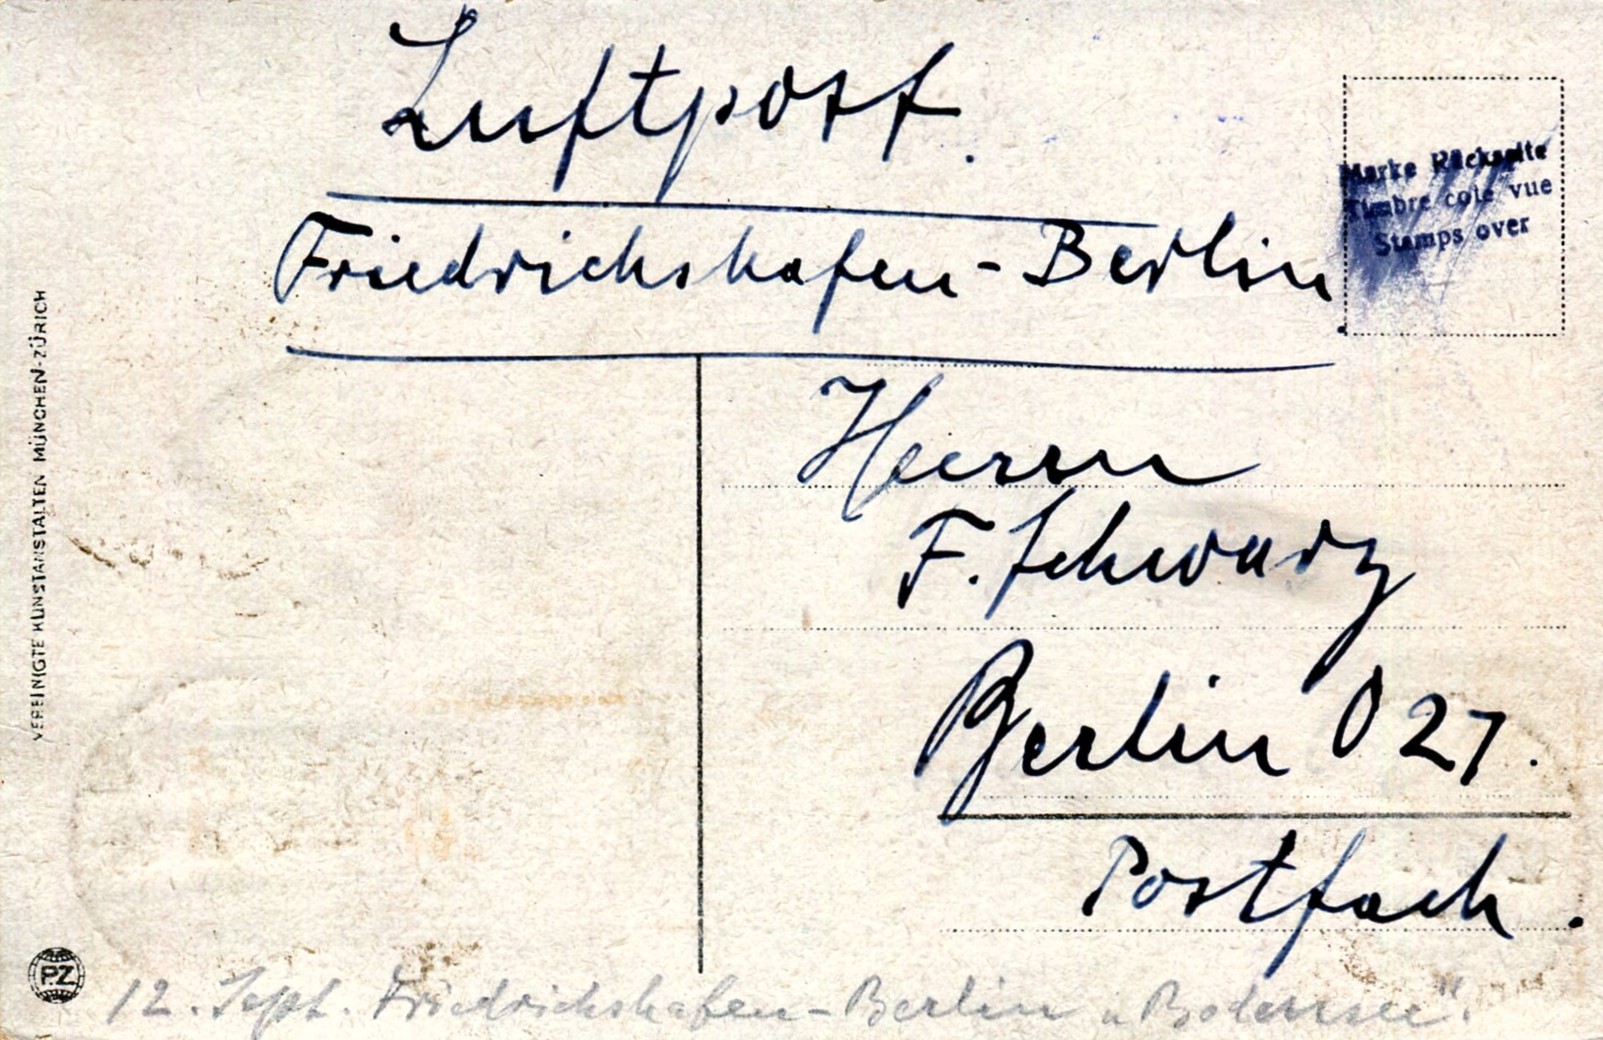 Luftpost.
Friedrichshafen-Berlin.
Marke Rückseite
Timbre coté vue
Stamps over
Herrn
F. Schwarz
Berlin O 27.
Postfach.
VEREINIGTE KUNSTANSTALTEN MÜNCHEN-ZÜRICH
PZ
12. Sept. Friedrichshafen-Berlin „Bodensee".